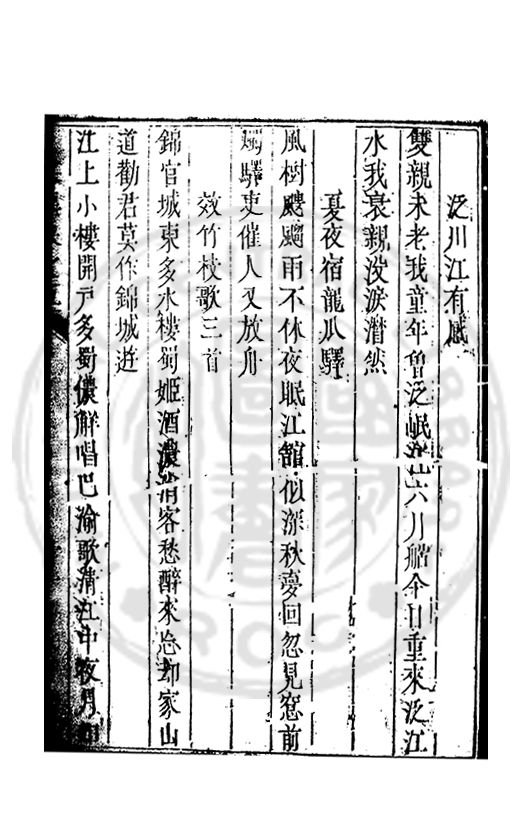 泛川江有感
雙親未老我童年曾泛岷江六月船今日重來泛江
水我衰親没淚潸然
夏夜宿龍爪驛
風樹颼颼雨不休夜眠江館似深秋夢回忽見窓前
燭驛吏催人又放舟
效竹枝歌三首
錦官城東多水樓蜀姬酒濃消客愁醉來忘却家山
道勸君莫作錦城遊
江上小樓開戶多蜀儂解唱巴渝歌清江中夜月